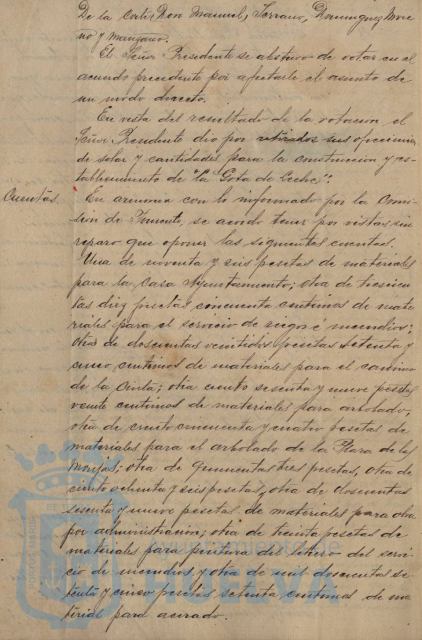 De la Corte Don Manuel, Serrano, Dominguez More
no y Manzano.
El Señor Presidente se abstuvo de votar en el
acuerdo precedente por afectarle el asunto de
un modo directo.
En vista del resultado de la votacion el
Señor Presidente dio por retirados sus ofrecimien
de solar y cantidades para la construccion y es-
tablecimiento de "La Gota de Leche".
Cuentas.
En armonia con lo informado por la Comi-
sion de se acordó tener por vistas sin
reparo que oponer las siguientes cuentas.
Una de noventa y seis pesetas de materiales
para la Casa Ayuntamiento; otra de trescien
tas diez pesetas cincuenta centimos de mate
riales para el servicio de riegos é incendios;
otra de doscientas veintidos pesetas setenta y
cinco centimos de materiales para el camino
de la Cinta; otra ciento sesenta y nueve pesetas
veinte centimos de materiales para arbolado,
otra de ciento cincuenta y cuatro pesetas de
materiales para el arbolado de la Plaza de las
Monjas; otra de quinientas tres pesetas, otra de
ciento ochenta y seis pesetas, otra de doscientas
sesenta y nueve pesetas de materiales para obras
por administracion; otra de treinta pesetas de
materiales para pintura del del servi
cio de incendios y otra de mil doscientas se
tenta y cinco pesetas setenta centimos de ma
terial para acerado.